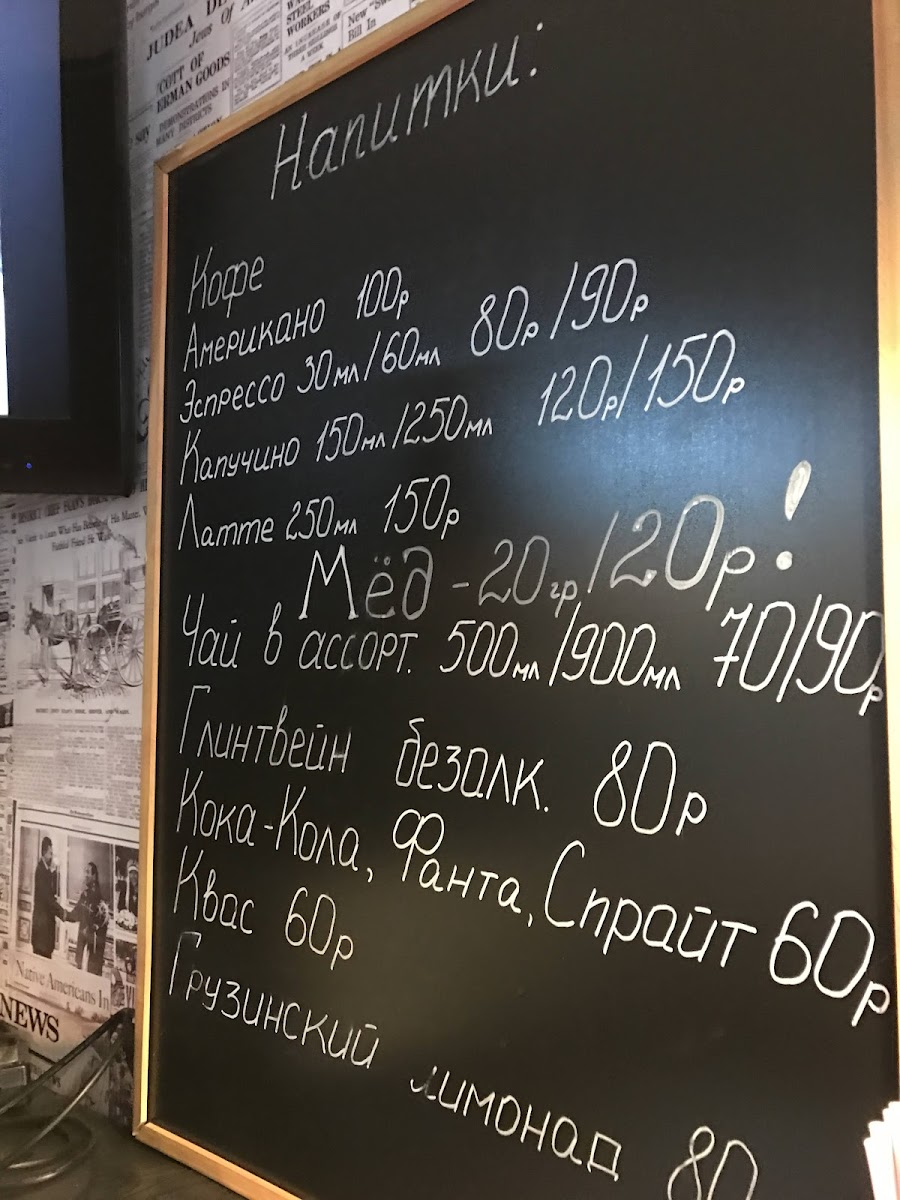 JUDEA DE
Jews Of
COTT OF
ERMAN GOODS
DEMONSTRATIONS IN
MANY DISTRICTS
WORKERS
New "Sw
Bill In
Напитки:
Кофе
Американо 100р
Эспрессо 30мл/60мл 80р/90р
Капучино 150мл/250мл 120р/150р
Латте 250мл 150р
Мёд - 20гр/20р!
Чай в ассорт. 500мл/900мл 70/90р
Глинтвейн безалк. 80р
Кока-Кола, Фанта, Спрайт 60р
Квас 60р
Грузинский лимонад 80
Native Americans In
NEWS